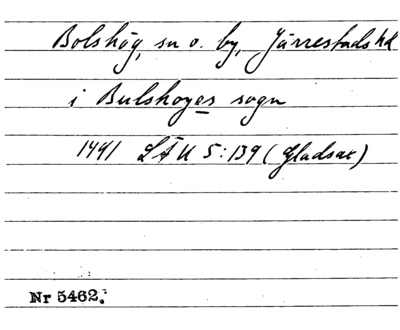 Bolshög, sn o. by, Järrestads hd
i Bulshoyes sogn
1491 LÄU 5:139 (Gladsax)
Nr 5462.